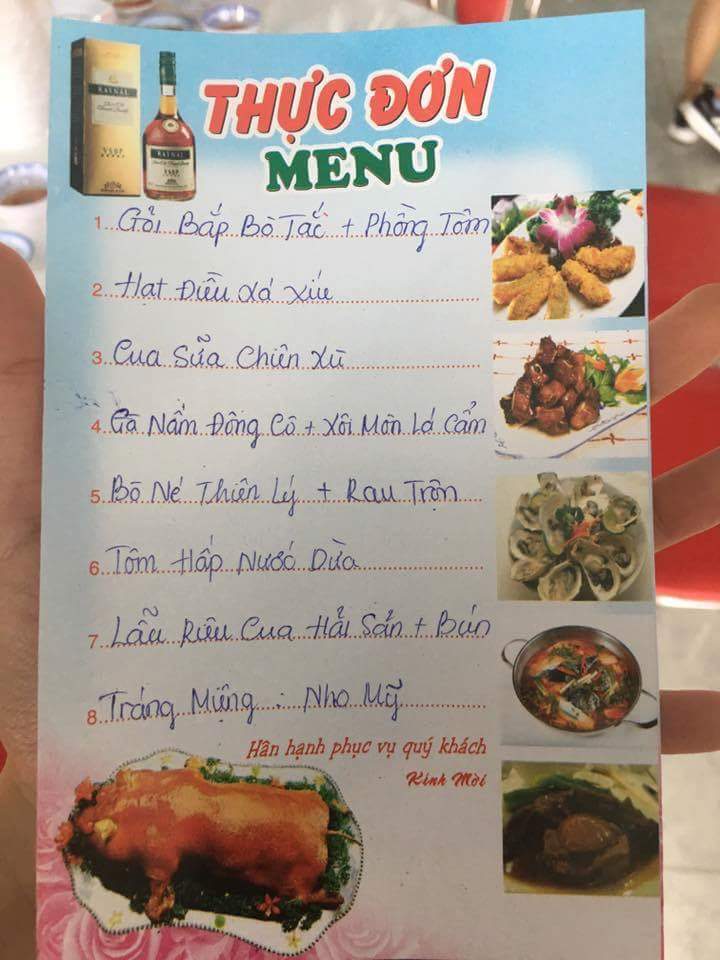 RAYNAL
VSOP
RAYNAL
VSOP
THỰC ĐƠN
MENU
1 Gỏi Bắp Bò Tắc + Phồng Tôm
2 Hạt Điều Xá Xíu
3 Cua Sữa Chiên Xù
4 Gà Nấm Đông Cô + Xôi Môn Lá Cẩm
5 Bò Né Thiên Lý + Rau Trộn
6 Tôm Hấp Nước Dừa
7 Lẩu Riêu Cua Hải Sản + Bún
8 Tráng Miệng : Nho Mỹ
Hân hạnh phục vụ quý khách
Kính Mời